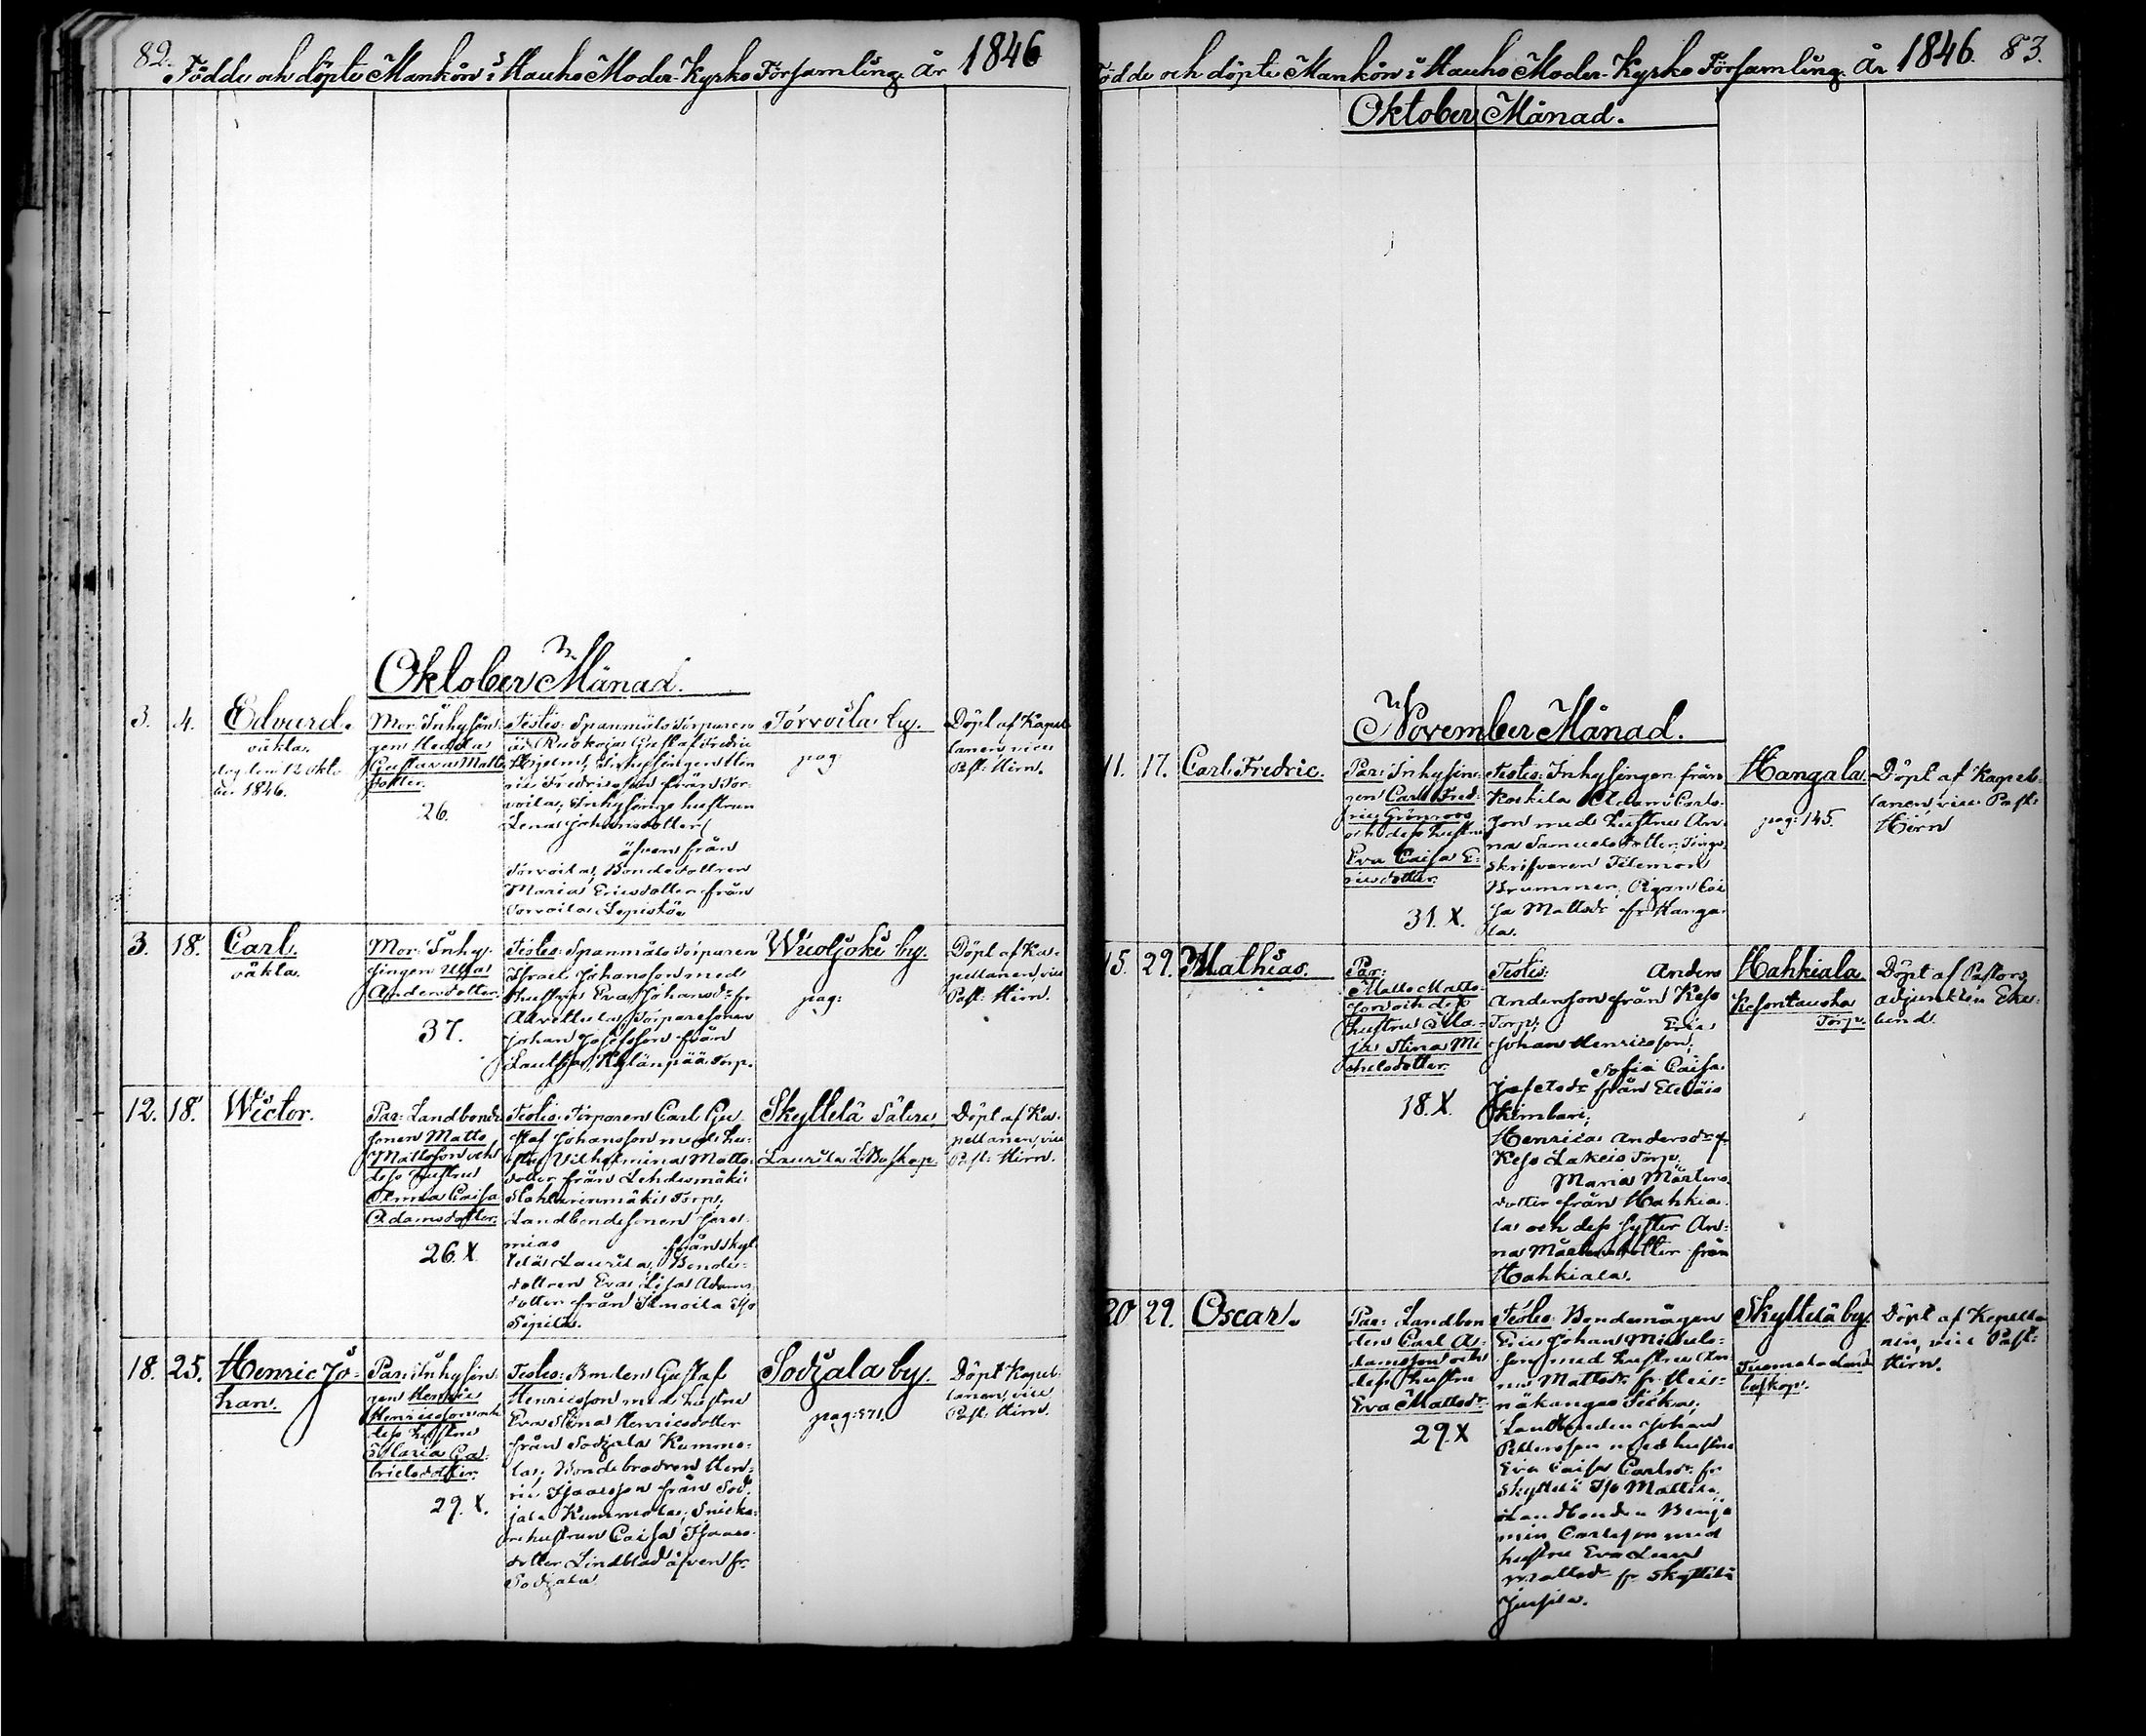 82. Födde och döpte Mankön i Hauho Moder-Kyrko Församling. År 1846
Oktober Månad.
3. 4. Edvard.
oäkta.
dog den 12 Okto
ber 1846.
Mor: Inhysin-
gen Hedda
Gustava Matts
dotter.
26.
Testis: Spanmåls Torparen
Gustaf Fredric
Inhysingen Hen
ric Fredricsson från Tor-
voila, Inhysings hustrun
Lena Johansdotter
äfven från
Torvoila, Bondedottren
Maria Ericsdotter från
Torvoila Lepistö
Torvoila by.
pag:
Döpt af Kapel-
lanen vice
Past: Hirn.
3. 18. Carl.
oäkta.
Mor: Inhy-
singen Ulla
Andersdotter.
37.
Testes: Spanmåls Torparen
Israel Johansson med
hustru Eva Johansdr fr
Alvettula, Torparesonen
Johan Josefsson från
Kylänpää Torp.
Wuoljoki by.
pag:
Döpt af Ka-
pellanen, vice
Past: Hirn.
12. 18. Wictor.
Par: Landbonde
sonen Matts
Mattsson och
dess hustru
Anna Caisa
Adamsdotter.
26. X
Testis: Torparen Carl Gu-
staf Johansson med hu-
stru Vilhelmina Matts-
dotter från Lehdesmäki
Torp,
Landbondesonen Jere-
mias från Skyt
telä Laurila, Bonde-
dottren Eva Lisa Adams
dotter från Simoila Iso
Sipilä.
Skyttelä Säteri,
Laurila L:Boskap.
Döpt af Ka-
pellanen, vice
Past: Hirn.
18. 25. Henric Jo-
han.
Par: Inhysin-
gen Henric
Henricsson och
dess hustru
Maria Ga-
brielsdotter.
29. X.
Testes: Bonden Gustaf
Henricsson med hustru
Eva Stina Henricsdotter
från Sodjala Kummo-
la; Bondebrodren Hen-
ric Isaacsson från Sod-
jala Kummola; Snicka-
rehustrun Caisa Isaacs-
dotter Lindblad äfven fr.
Sodjala
Sodjala by.
pag: 571.
Döpt Kapel-
lanen, vice
Past: Hirn.
Födde och döpte Mankön i Hauho Moder-Kyrko Församling. År 1846. 83.
Oktober Månad.
November Månad.
11. 17. Carl Fredric.
Par: Inhysin-
gen Carl Fred-
ric Grönroos
och dess hustru
Eva Caisa E-
ricsdotter.
31. X.
Testes: Inhysingen från
Koskila Adam Carls-
son med hustru An-
na Samuelsdotter; Tings-
skrifvaren Tileman
Brummer, Pigan Cai
sa Mattsdr fr Hanga-
la.
Hangala.
pag: 145.
Döpt af Kapel-
lanen, vice Past:
Hirn
15. 29. Mathias.
Par:
Matts Matts-
son och dess
hustru Ma-
ja Stina Mi
chelsdotter.
18. X.
Testis: Anders
Andersson från Keso
Torp; Eric
Johan Henricsson;
Sofia Caisa
Josefsdr från Eteläis
Kimbari;
Henrica Andersdr fr
Keso Lakeis Torp.
Maria Mårtens-
dotter från Hahkia-
la och dess syster An-
na Mårtensdotter från
Hahkiala.
Hahkiala
Kesontausta
Torp.
Döpt af Pastors
adjunkten Eke-
lund.
20 29. Oscar.
Par: Landbon
den Carl A-
damsson och
dess hustru
Eva Mattsdr.
29. X
Testes: Bondemågen
Eric Johan Michels-
son med hustru An
na Mattsdr fr Hei-
näkangas Sicka;
Landbonden Johan
Pettersson med hustru
Eva Caisa Carlsdr fr
Skyttelä Iso Mattila,
Landbonden Benja
min Carlsson med
hustru Eva Lena
Mattsdr fr Skyttelä
Jussila.
Skyttelä by.
Tuomola Land
boskap.
Döpt af Kapella
nen, vice Past:
Hirn.